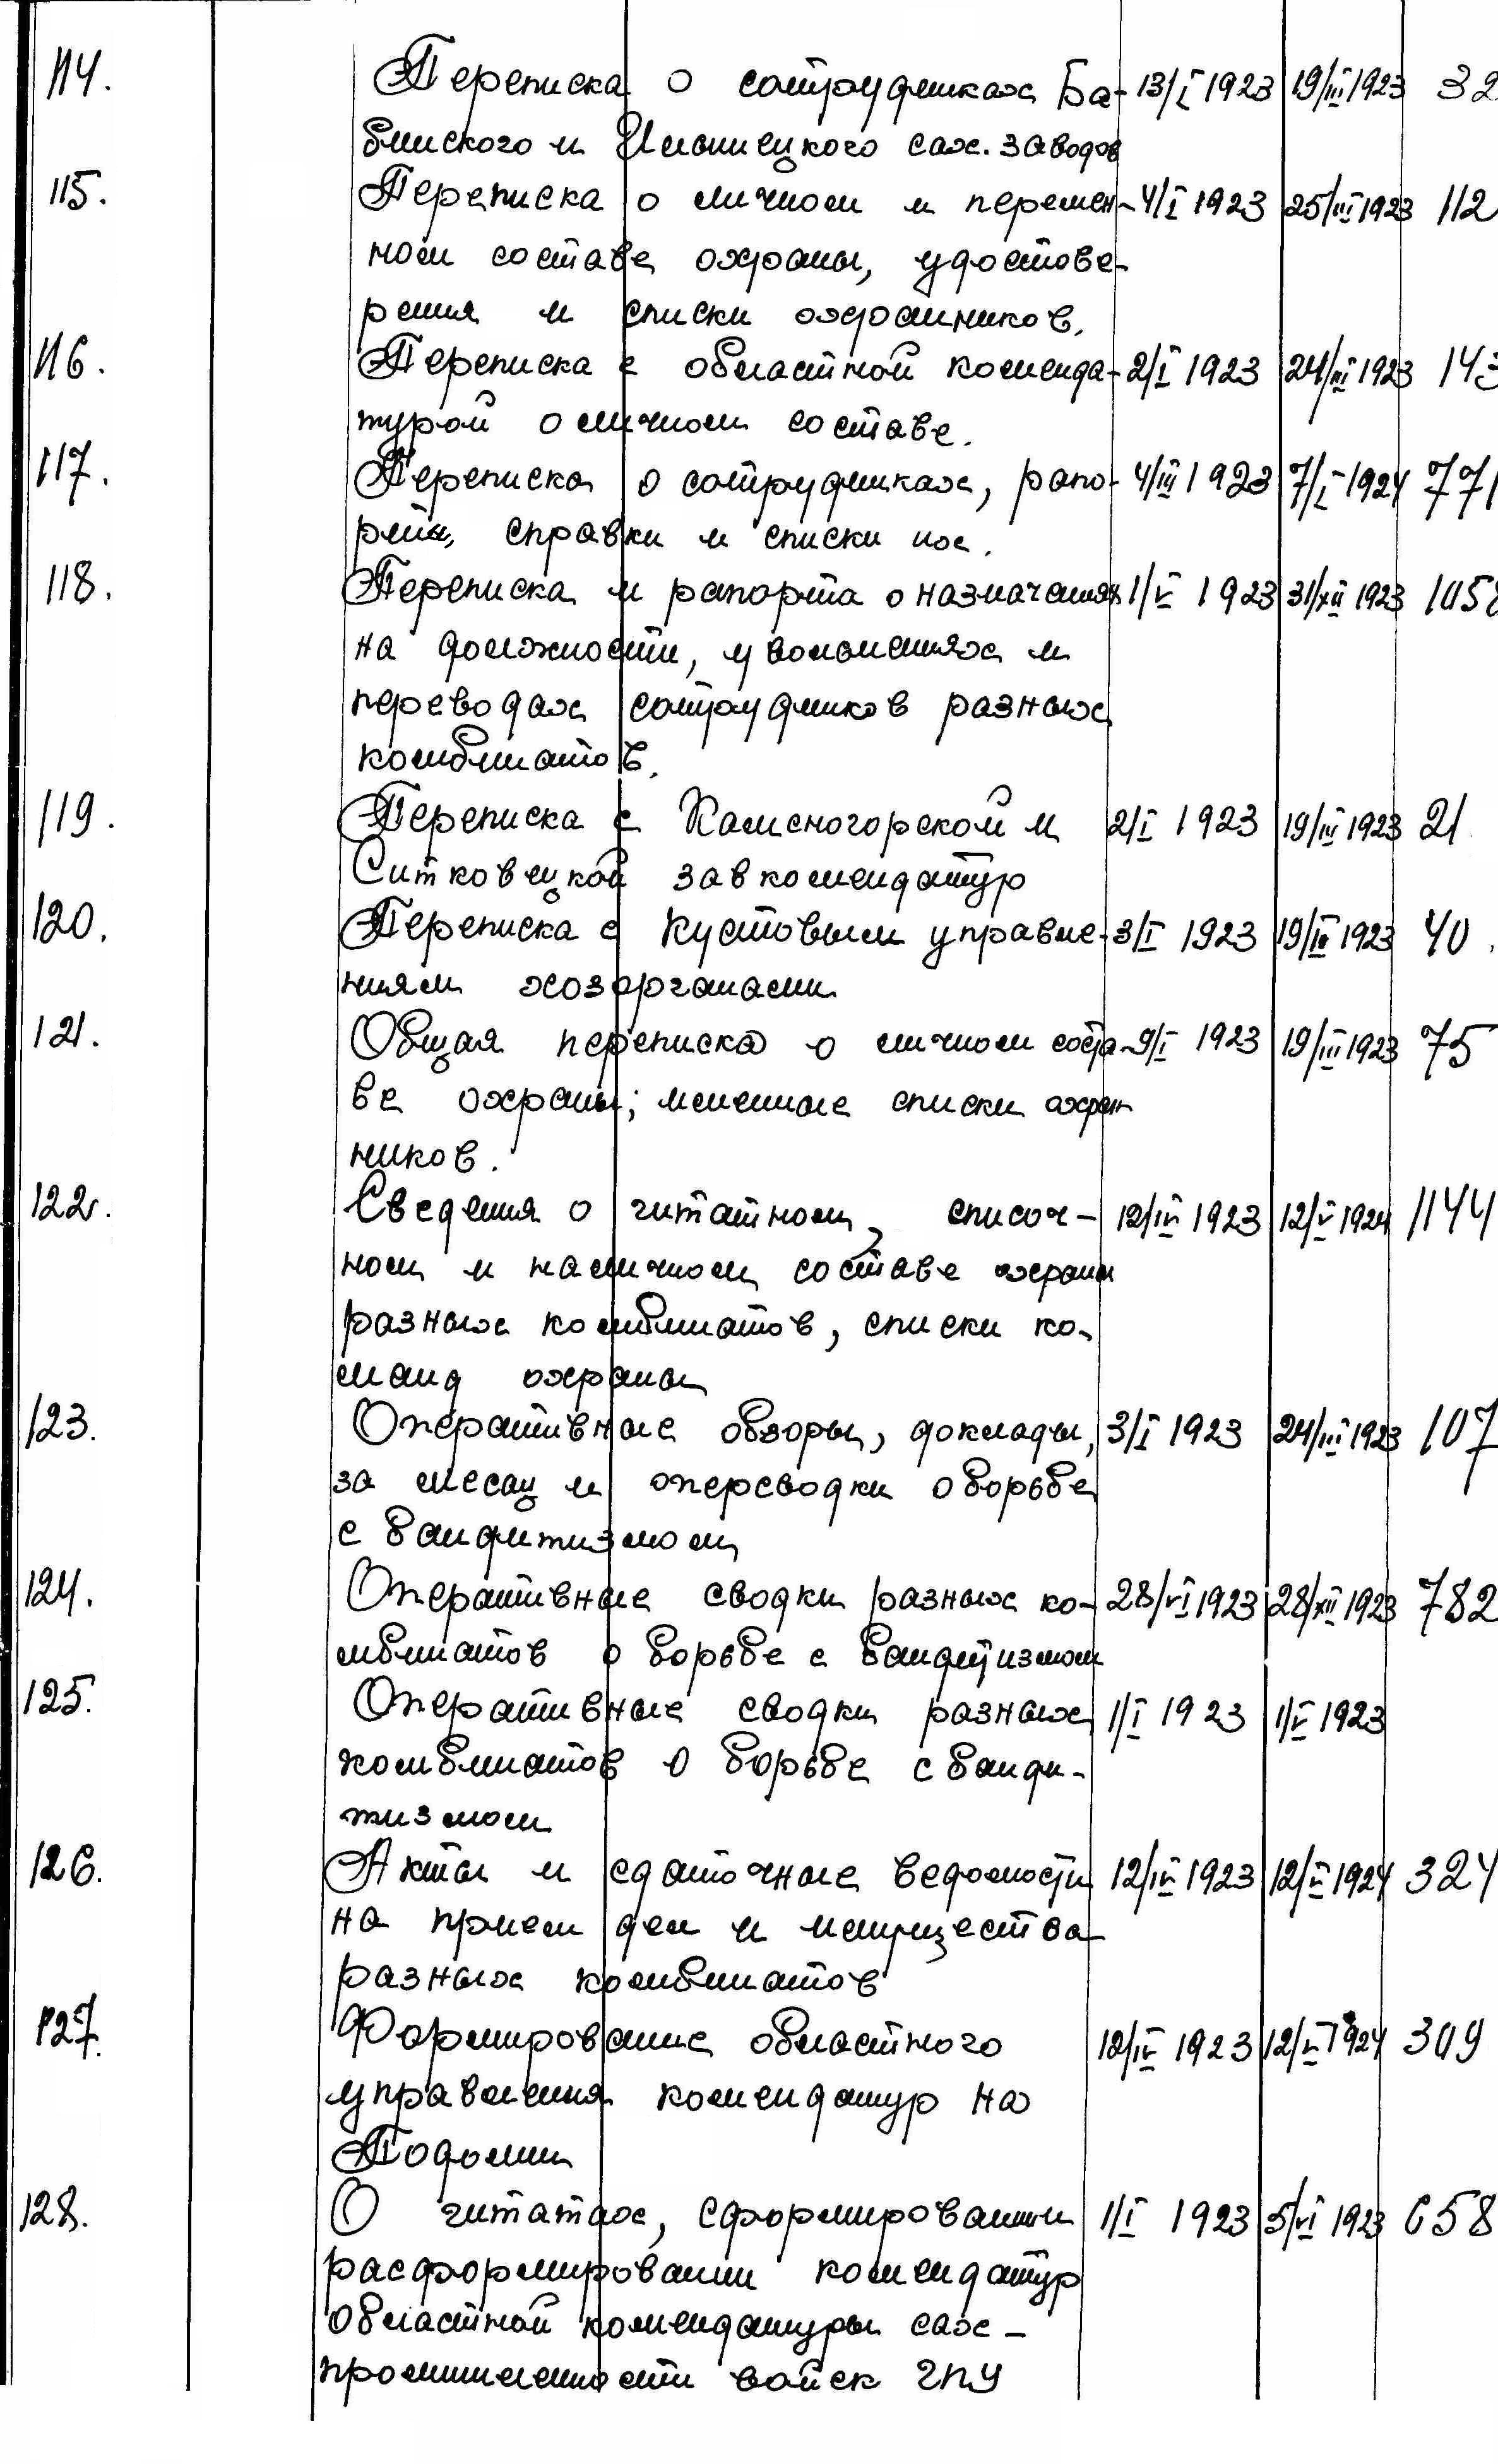 114. Переписка о сотрудниках Ба- 13/I 1923 19/III 1923 32
бинского и сах. заводов
115. Переписка о личном и перемен- 4/I 1923 25/III 1923 112
ном составе охраны, удостове-
рения и списки охранников.
116. Переписка с областной коменда- 2/I 1923 24/III 1923 143
турой о личном составе.
117. Переписка о сотрудниках, рапо- 4/III 1923 7/I 1924 771
рты, справки и списки их.
118. Переписка и рапорта о назначениях 1/V 1923 31/XII 1923 1058
на должности, увольнениях и
переводах сотрудников разных
комбинатов.
119. Переписка с Каменогорской и 2/I 1923 19/III 1923 21
Ситковецкой завкомендатур
120. Переписка с кустовым управле- 3/I 1923 1923 40.
ниям хозорганами
121. Общая переписка о личном соста- 9/I 1923 19/III 1923 75
ве охраны; именные списки охран
ников.
122. Сведения о читатном, списоч- 12/IV 1923 12/V 1924 1144
ном и наличном составе охраны
разных комбинатов, списки ко-
манд охраны
123. Оперативные обзоры, доклады, 3/I 1923 24/III 1923 107
за месяц и оперсводки о борьбе
с бандитизмом
124. Оперативные сводки разных ко- 28/VI 1923 28/XII 1923 782
мбинатов о борьбе с бандитизмом
125. Оперативные сводки разных 1/I 1923 1/V 1923
комбинатов о борьбе с банди-
тизмом
126. Акты и сдаточные ведомости 12/IV 1923 12/V 1924 324
на прием дел и имущества
разных комбинатов
127. Формирование областного 12/IV 1923 12/V 1924 309
управления комендатур на
Подолии
128. О читатах, сформировании 1/I 1923 5/VI 1923 658
расформировании комендатур
областной комендатуры сах-
промышленности войск ГПУ